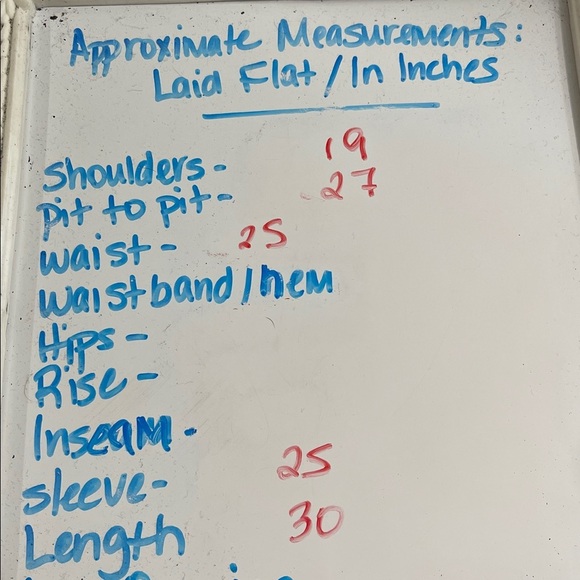 Approximate Measurements:
Laid Flat / In Inches
Shoulders- 19
pit to pit- 27
waist- 25
waistband/hem
Hips-
Rise-
Inseam-
sleeve- 25
Length 30